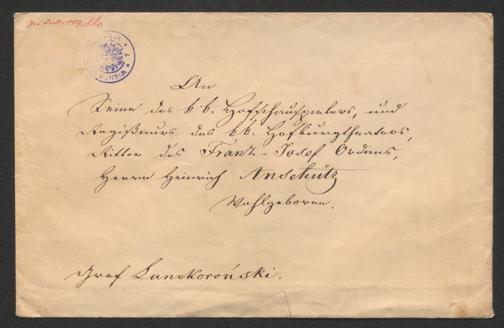 An
Seine des k. k. Hofschauspielers, und
Regisseurs des k.k. Hofburgtheaters,
Ritter des Franz-Josef Ordens,
Herrn Heinrich Anschütz
Wohlgeboren.
Graf Lanckoroński.